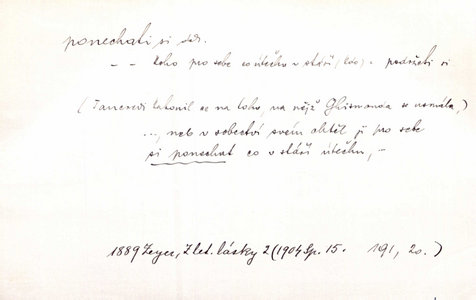 ponechati si dok.
– – koho pro sebe co útěchu v stáří (kdo) - podržeti si
(Tancred lakomil se na toho, na nějž Ghismonda se usmála,)
..., neb v sobectví svém chtěl ji pro sebe
si ponechat co v stáří útěchu, –
1889 Zeyer, Z let. lásky 2 (1904 Sp. 15. 191, 20.)